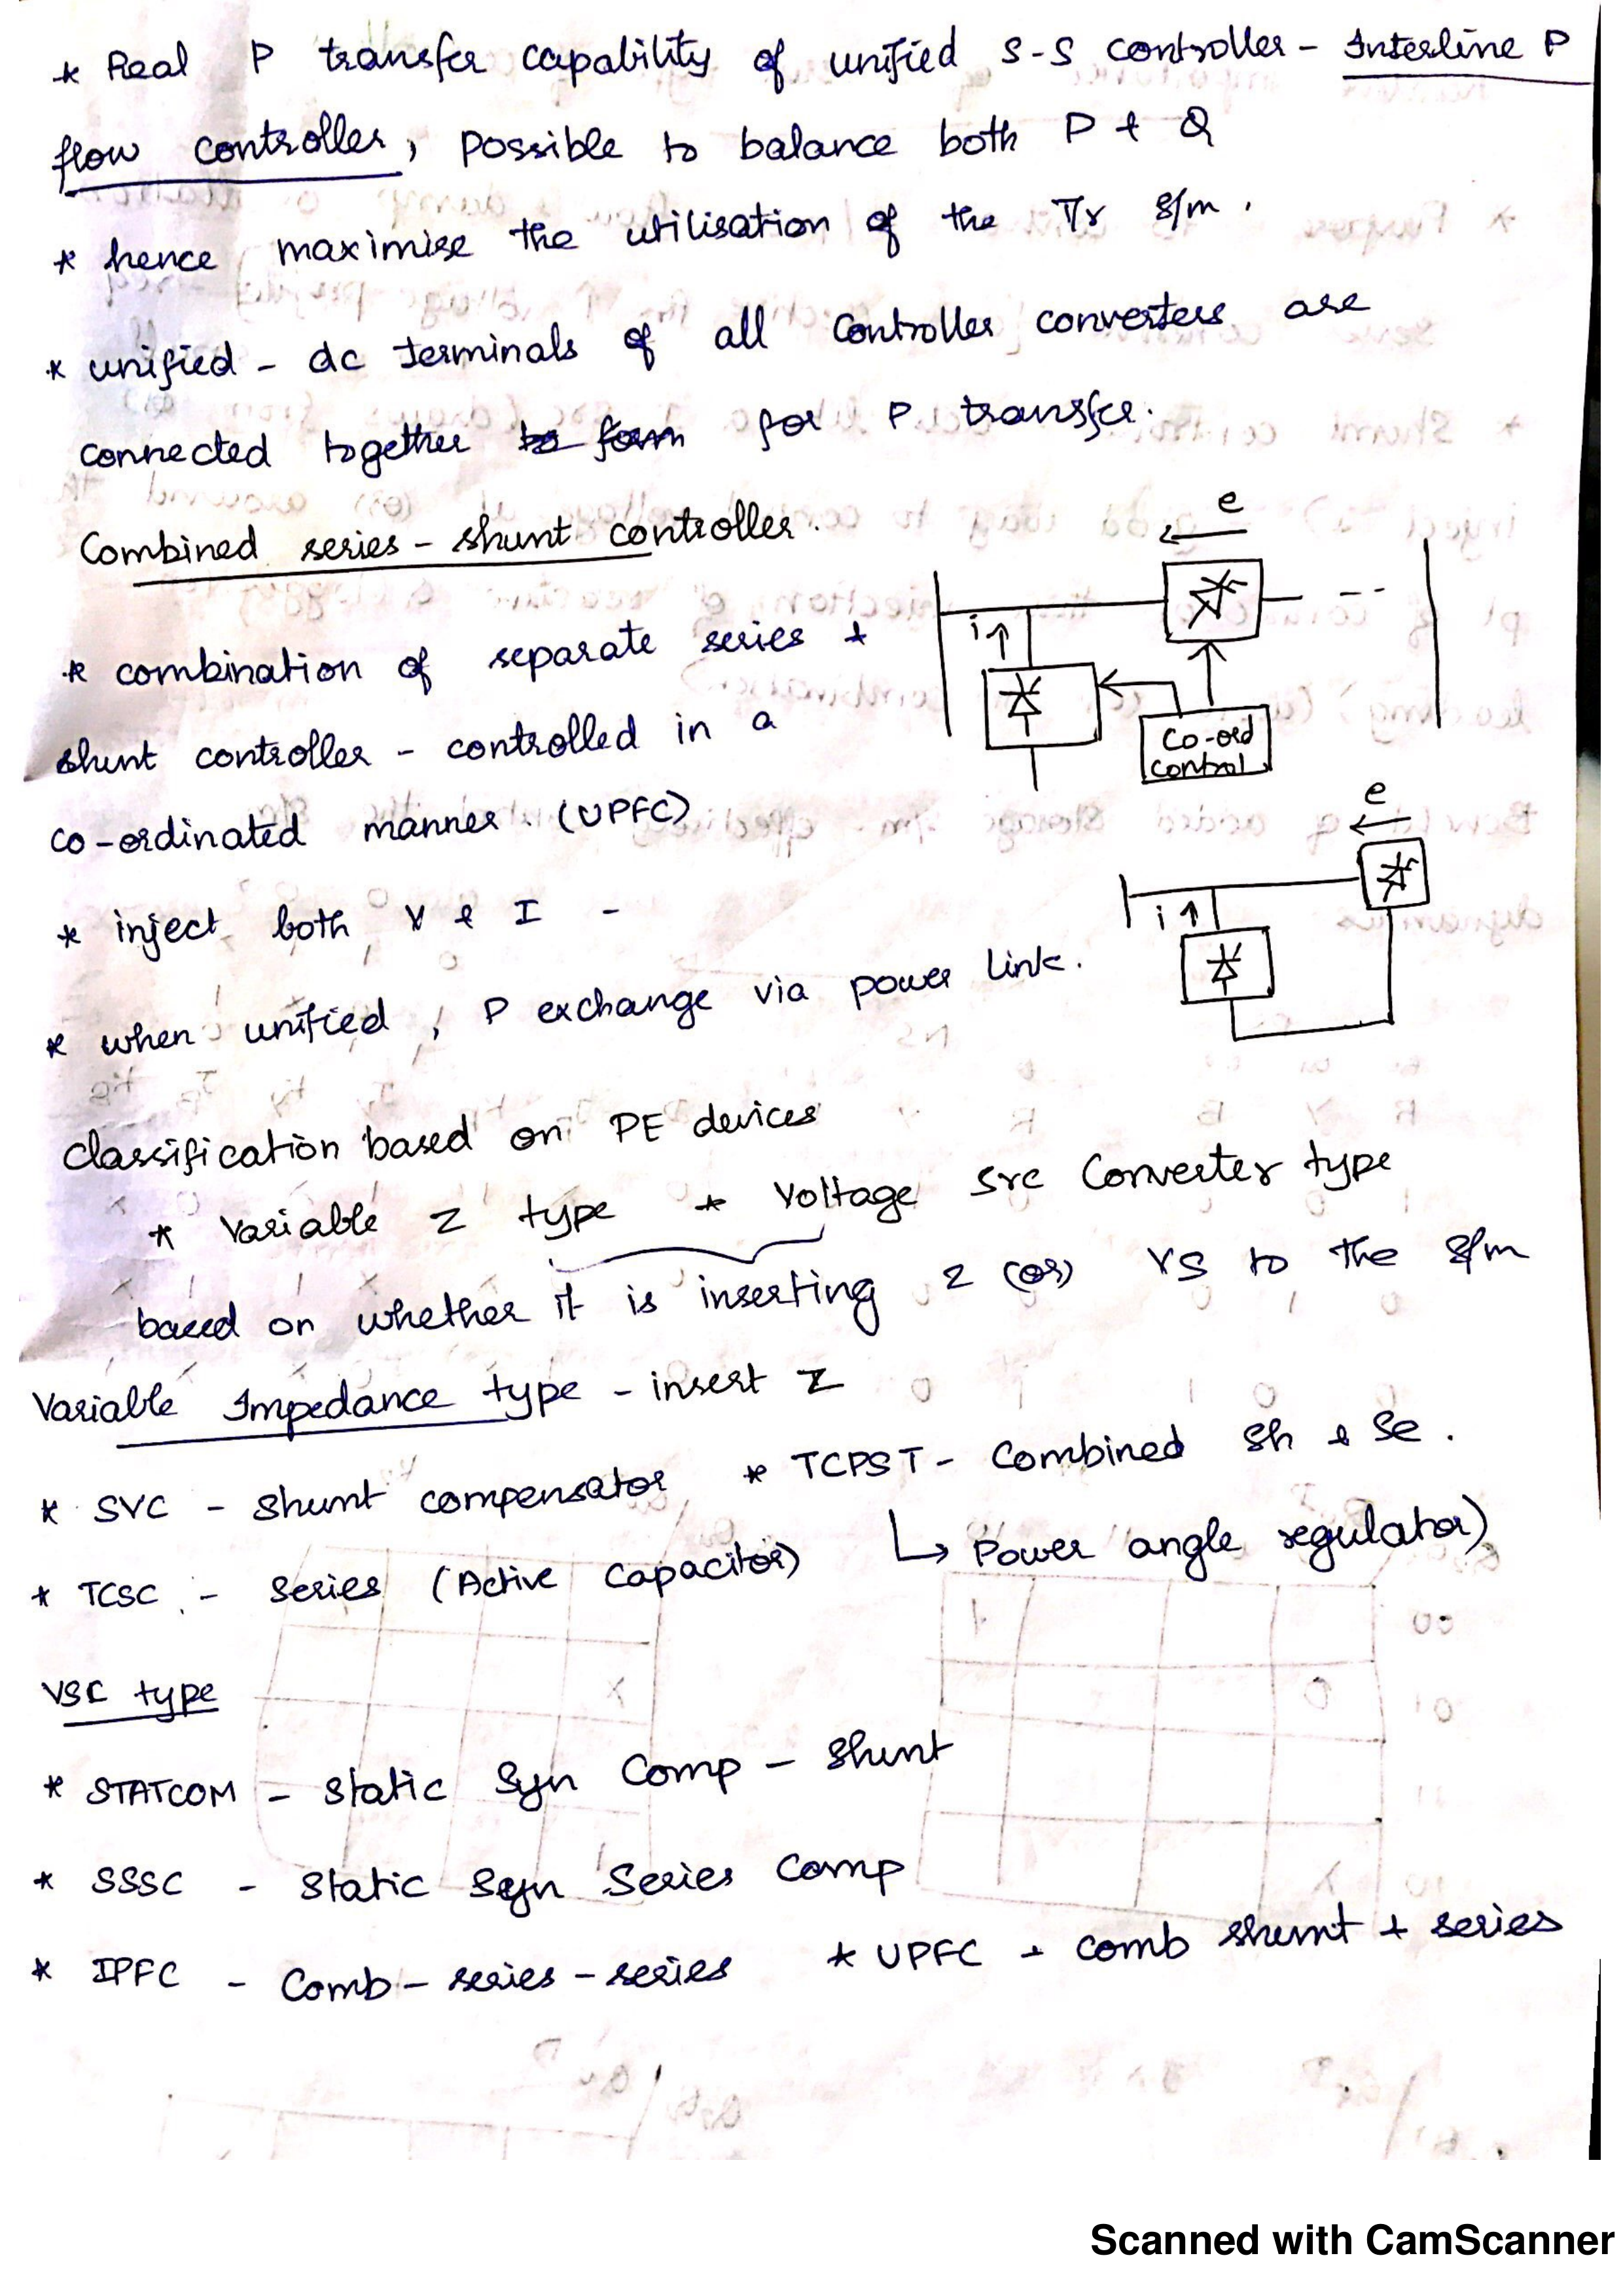 * Real P transfer capability of unified s-s controller - Interline P
flow controller, possible to balance both P & Q
* hence maximise the utilisation of the Tr s/m.
* unified - dc terminals of all controller converters are
connected together to form for P transfer.
Combined series - shunt controller.
e
* combination of separate series +
i
shunt controller - controlled in a
Co-ord
control
co-ordinated manner. (UPFC)
e
* inject both V & I -
i
* when unified, P exchange via power link.
Classification based on PE devices
* Variable Z type * Voltage src Converter type
based on whether it is inserting Z (or) VS to the s/m
Variable Impedance type - insert Z
* SVC - shunt compensator * TCPST - Combined Sh & Se.
* TCSC - series (Active Capacitor) ↳ Power angle regulator)
VSC type
* STATCOM - static Syn Comp - shunt
* SSSC - static Syn Series Comp
* IPFC - Comb - series - series * UPFC - comb shunt + series
Scanned with CamScanner